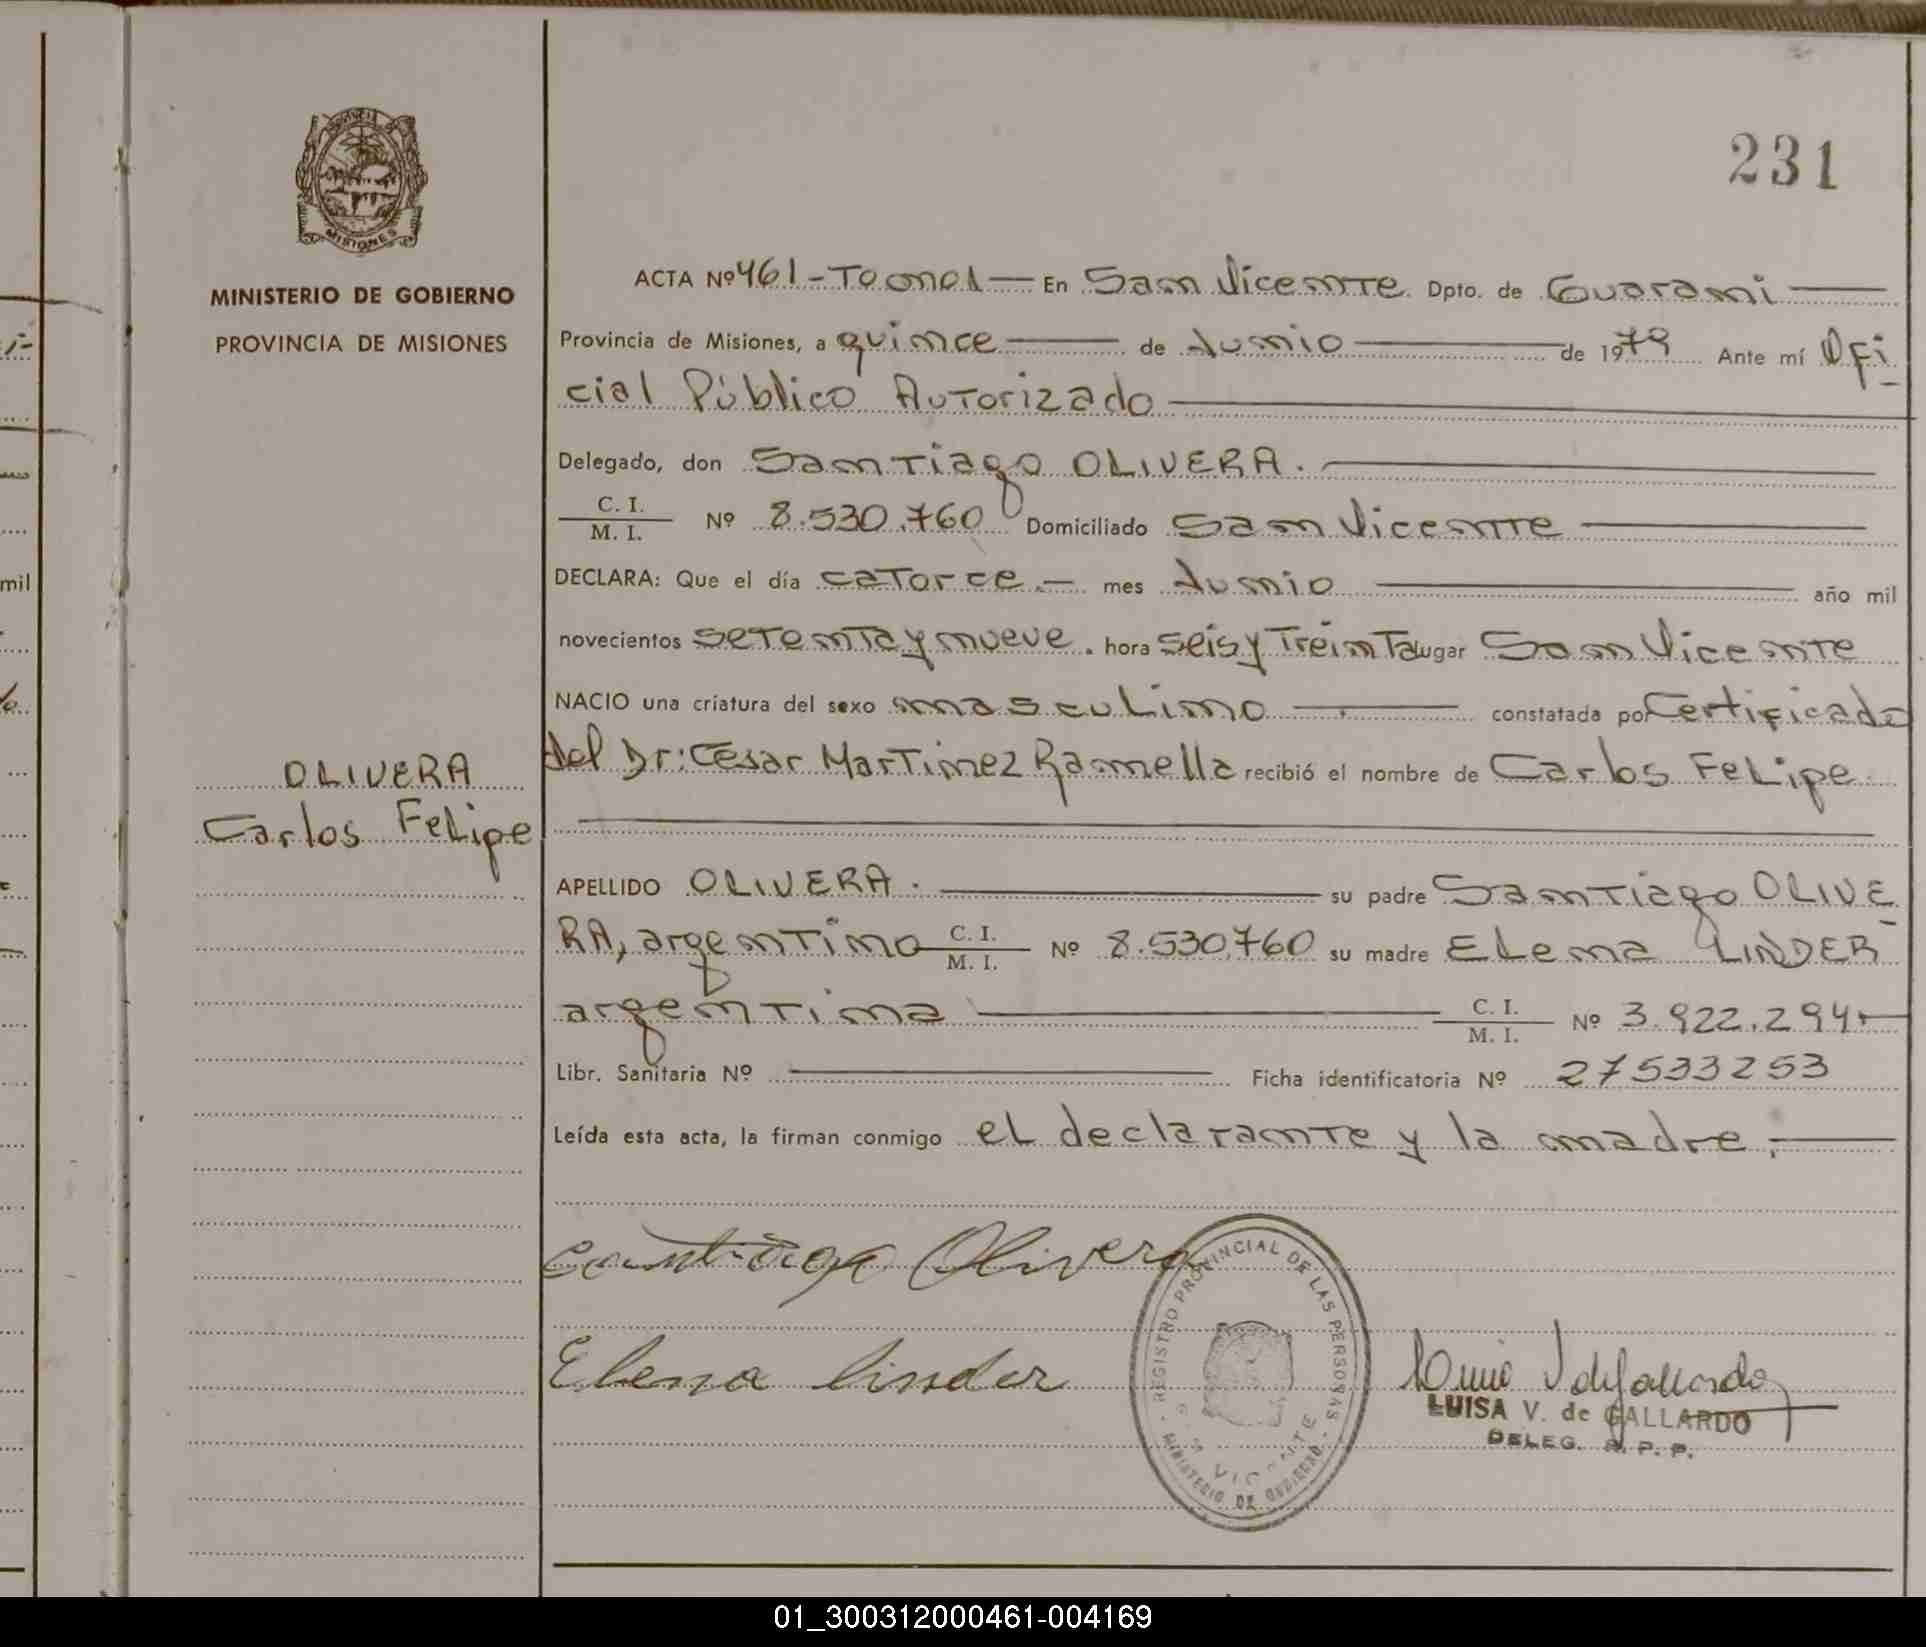 231
PROVINCIA DE
MISIONES
MINISTERIO DE GOBIERNO
PROVINCIA DE MISIONES
ACTA Nº 461 - Tomo 1 — En San Vicente Dpto. de Guarani
Provincia de Misiones, a quince de Junio de 1979 Ante mí Ofi-
cial Público Autorizado
Delegado, don Santiago OLIVERA.
C. I.
M. I. Nº 8.530.760 Domiciliado San Vicente
DECLARA: Que el día catorce.- mes Junio año mil
novecientos setenta y nueve. hora seis y Treinta lugar San Vicente
NACIO una criatura del sexo masculino constatada por Certificado
del Dr: César Martinez Ramella recibió el nombre de Carlos Felipe
OLIVERA
Carlos Felipe
APELLIDO OLIVERA. su padre Santiago OLIVE-
RA, argentino C. I.
M. I. Nº 8.530.760 su madre Elena LINDER
argentina C. I.
M. I. Nº 3.922.294
Libr. Sanitaria Nº Ficha identificatoria Nº 27533253
Leída esta acta, la firman conmigo el declarante y la madre.
Santiago Olivera
Elena linder
REGISTRO PROVINCIAL DE LAS PERSONAS
MINISTERIO DE GOBIERNO
LUISA V. de GALLARDO
DELEG. R. P. P.
01_300312000461-004169
mil